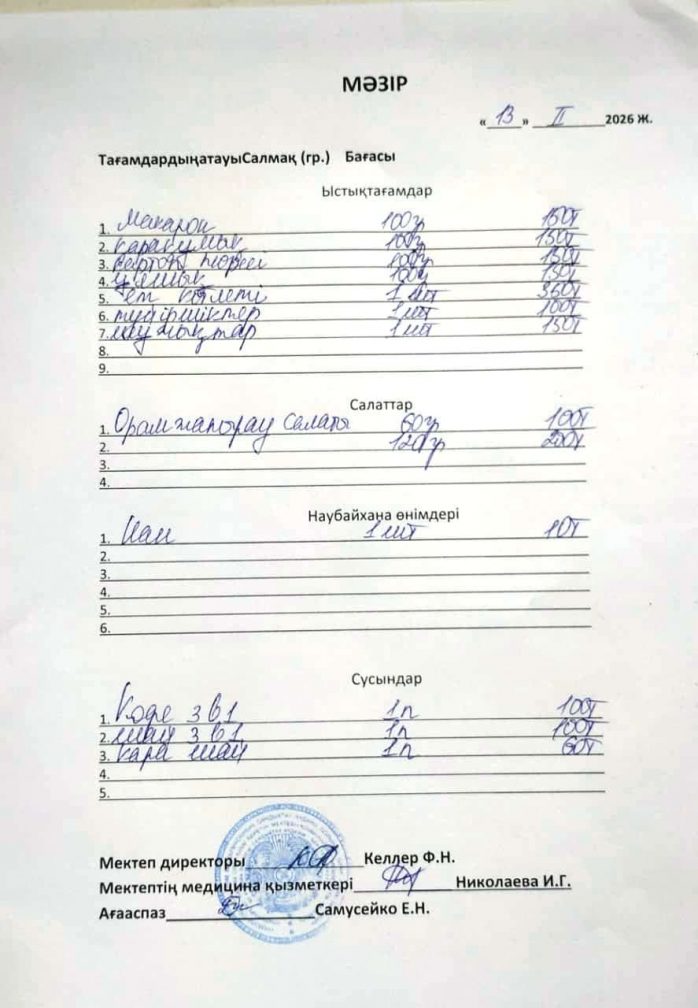 МӘЗІР
« 13 » II 2026 Ж.
ТағамдардыңатауыСалмақ (гр.) Бағасы
Ыстықтағамдар
1. Макарон 100гр 150т
2. қарақұмық 100гр 150т
3. картоп пюресі 100гр 150т
4. 100гр 150т
5. ет котлеті 1 шт 350т
6. 1 шт 100т
7. шұжықтар 1 шт 150т
8.
9.
Салаттар
1. Орамжапырақ салаты 60гр 100т
2. 120гр 200т
3.
4.
Наубайхана өнімдері
1. Нан 1 шт 10т
2.
3.
4.
5.
6.
Сусындар
1. Кофе 3 в 1 1п 100т
2. шай 3 в 1 1п 100т
3. қара шай 1п 60т
4.
5.
Мектеп директоры Келлер Ф.Н.
Мектептің медицина қызметкері Николаева И.Г.
Ағааспаз Самусейко Е.Н.